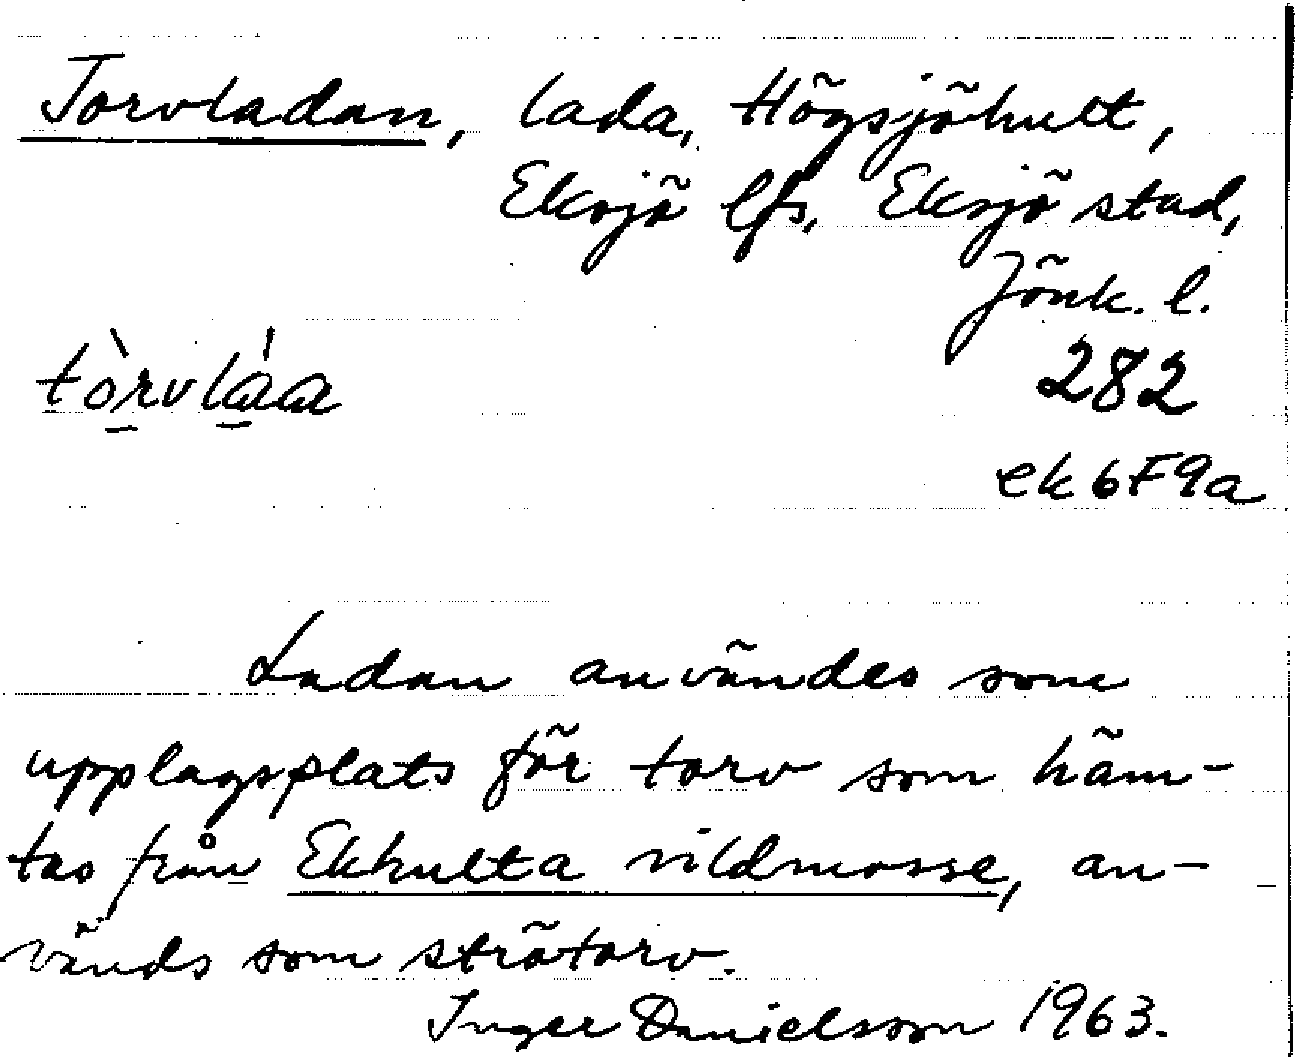 Torvladan, lada, Högsjöhult,
Eksjö lfs, Eksjö stad,
Jönk. l.
tòrvlàa
282
ek 6F9a
Ladan användes som
upplagsplats för torv som häm-
tas från Ekhulta vildmosse, an-
vänds som strötorv.
Inger Danielsson 1963.